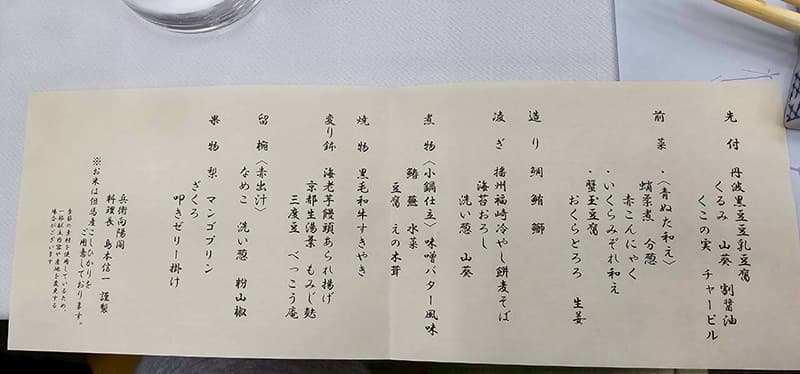 先付 丹波黒豆豆乳豆腐
くるみ 山葵 割醤油
くこの実 チャービル
前菜 ・〈青ぬた和え〉
蛸柔煮 分葱
赤こんにゃく
・いくらみぞれ和え
・蟹玉豆腐
おくらとろろ 生姜
造り 鯛 鮪 鰤
凌ぎ 播州福崎冷やし餅麦そば
海苔おろし
洗い葱 山葵
煮物 〈小鍋仕立〉味噌バター風味
鰆 蕪 水菜
豆腐 えの木茸
焼物 黒毛和牛すきやき
変り鉢 海老芋饅頭あられ揚げ
京都生湯葉 もみじ麩
三度豆 べっこう庵
留椀 〈赤出汁〉
なめこ 洗い葱 粉山椒
果物 梨 マンゴプリン
ざくろ
叩きゼリー掛け
兵衛向陽閣
料理長 島本信一 謹製
※お米は但馬産こしひかりを
ご用意しております。
季節の素材を使用しているため、
一部献立内容や産地を変更する
場合がございます